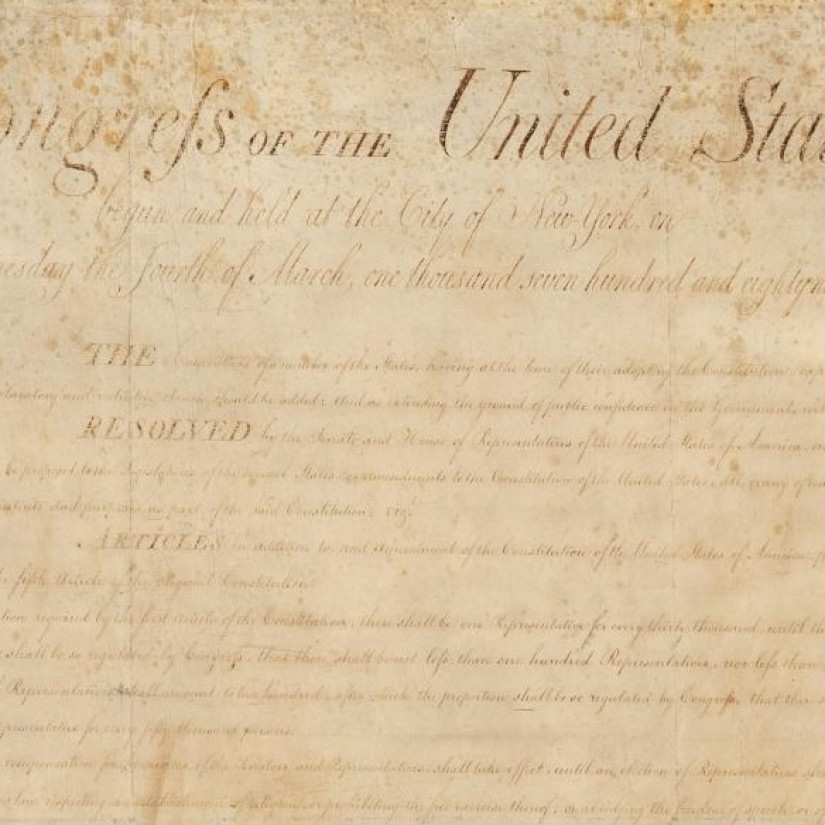 ongress OF THE United Sta
begun and held at the City of New-York, on
nesday the fourth of March, one thousand seven hundred and eightyn
THE Conventions of a number of the States, having at the time of their adopting the Constitution, exp
claratory and restrictive clauses should be added: And as extending the ground of public confidence in the Government, wil
RESOLVED by the Senate and House of Representatives of the United States of America, in
be proposed to the Legislatures of the several States, as amendments to the Constitution of the United States, all, or any of
intents and purposes, as part of the said Constitution; viz.
ARTICLES in addition to, and Amendment of the Constitution of the United States of America, p
he fifth Article of the original Constitution.
tion required by the first article of the Constitution, there shall be one Representative for every thirty thousand, until th
shall be so regulated by Congress, that there shall be not less than one hundred Representatives, nor less than
Representatives shall amount to two hundred, after which the proportion shall be so regulated by Congress, that there s
presentative for every fifty thousand persons.
compensation for the services of the Senators and Representatives, shall take effect, until an election of Representatives sh
law respecting an establishment of religion, or prohibiting the free exercise thereof; or abridging the freedom of speech, or of